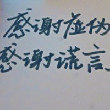 感谢虚伪
感谢谎言